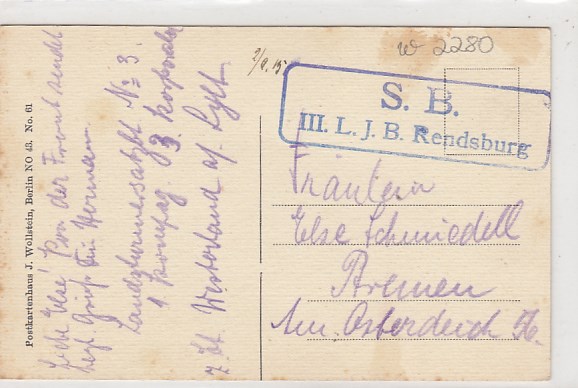 W 2280
2/9.15
S. B.
III. L. J. B. Rendsburg
Fräulein
Else Schmiedell
Bremen
Am Osterdeich 56.
Liebe Else! Von der Front sendet
herzl. Grüße Dein Hermann.
Landsturmersatzbt No 3.
1 Kompag. 3. Korporalsch
z. Zt Westerland a/ Sylt.
Postkartenhaus J. Wollstein, Berlin NO 43. No. 61